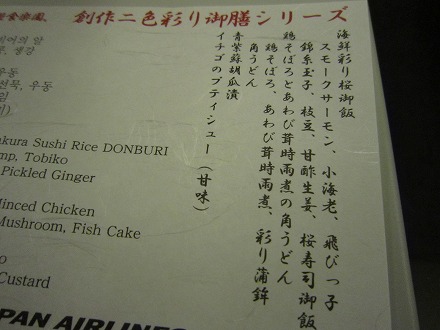 創作二色彩り御膳シリーズ
海鮮彩り桜御飯
スモークサーモン、小海老、飛びっ子
錦糸玉子、枝豆、甘酢生姜、桜寿司御飯
鶏そぼろとあわび茸時雨煮の角うどん
鶏そぼろ、あわび茸時雨煮、彩り蒲鉾
角うどん
青紫蘇胡瓜漬
イチゴのプティシュー(甘味)
우동
천묵, 우동
akura Sushi Rice DONBURI
mp, Tobiko
Pickled Ginger
Minced Chicken
Mushroom, Fish Cake
o
Custard
PAN AIRLINES